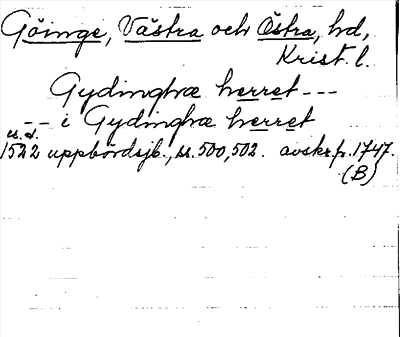 Göinge, Västra och Östra, hd,
Krist. l.
Gydinghræ herret ---
-- i Gydinghræ herret
u.d.
1522 uppbördsjb., s. 500, 502. avskr. fr. 1747.
(B)